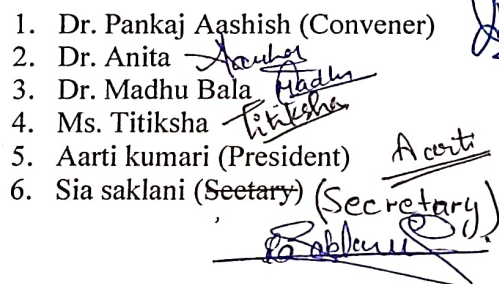 1. Dr. Pankaj Aashish (Convener)
2. Dr. Anita
3. Dr. Madhu Bala Madhu
4. Ms. Titiksha Titiksha
5. Aarti kumari (President) Aarti
6. Sia saklani (Seetary) (Secretary)
Saklani